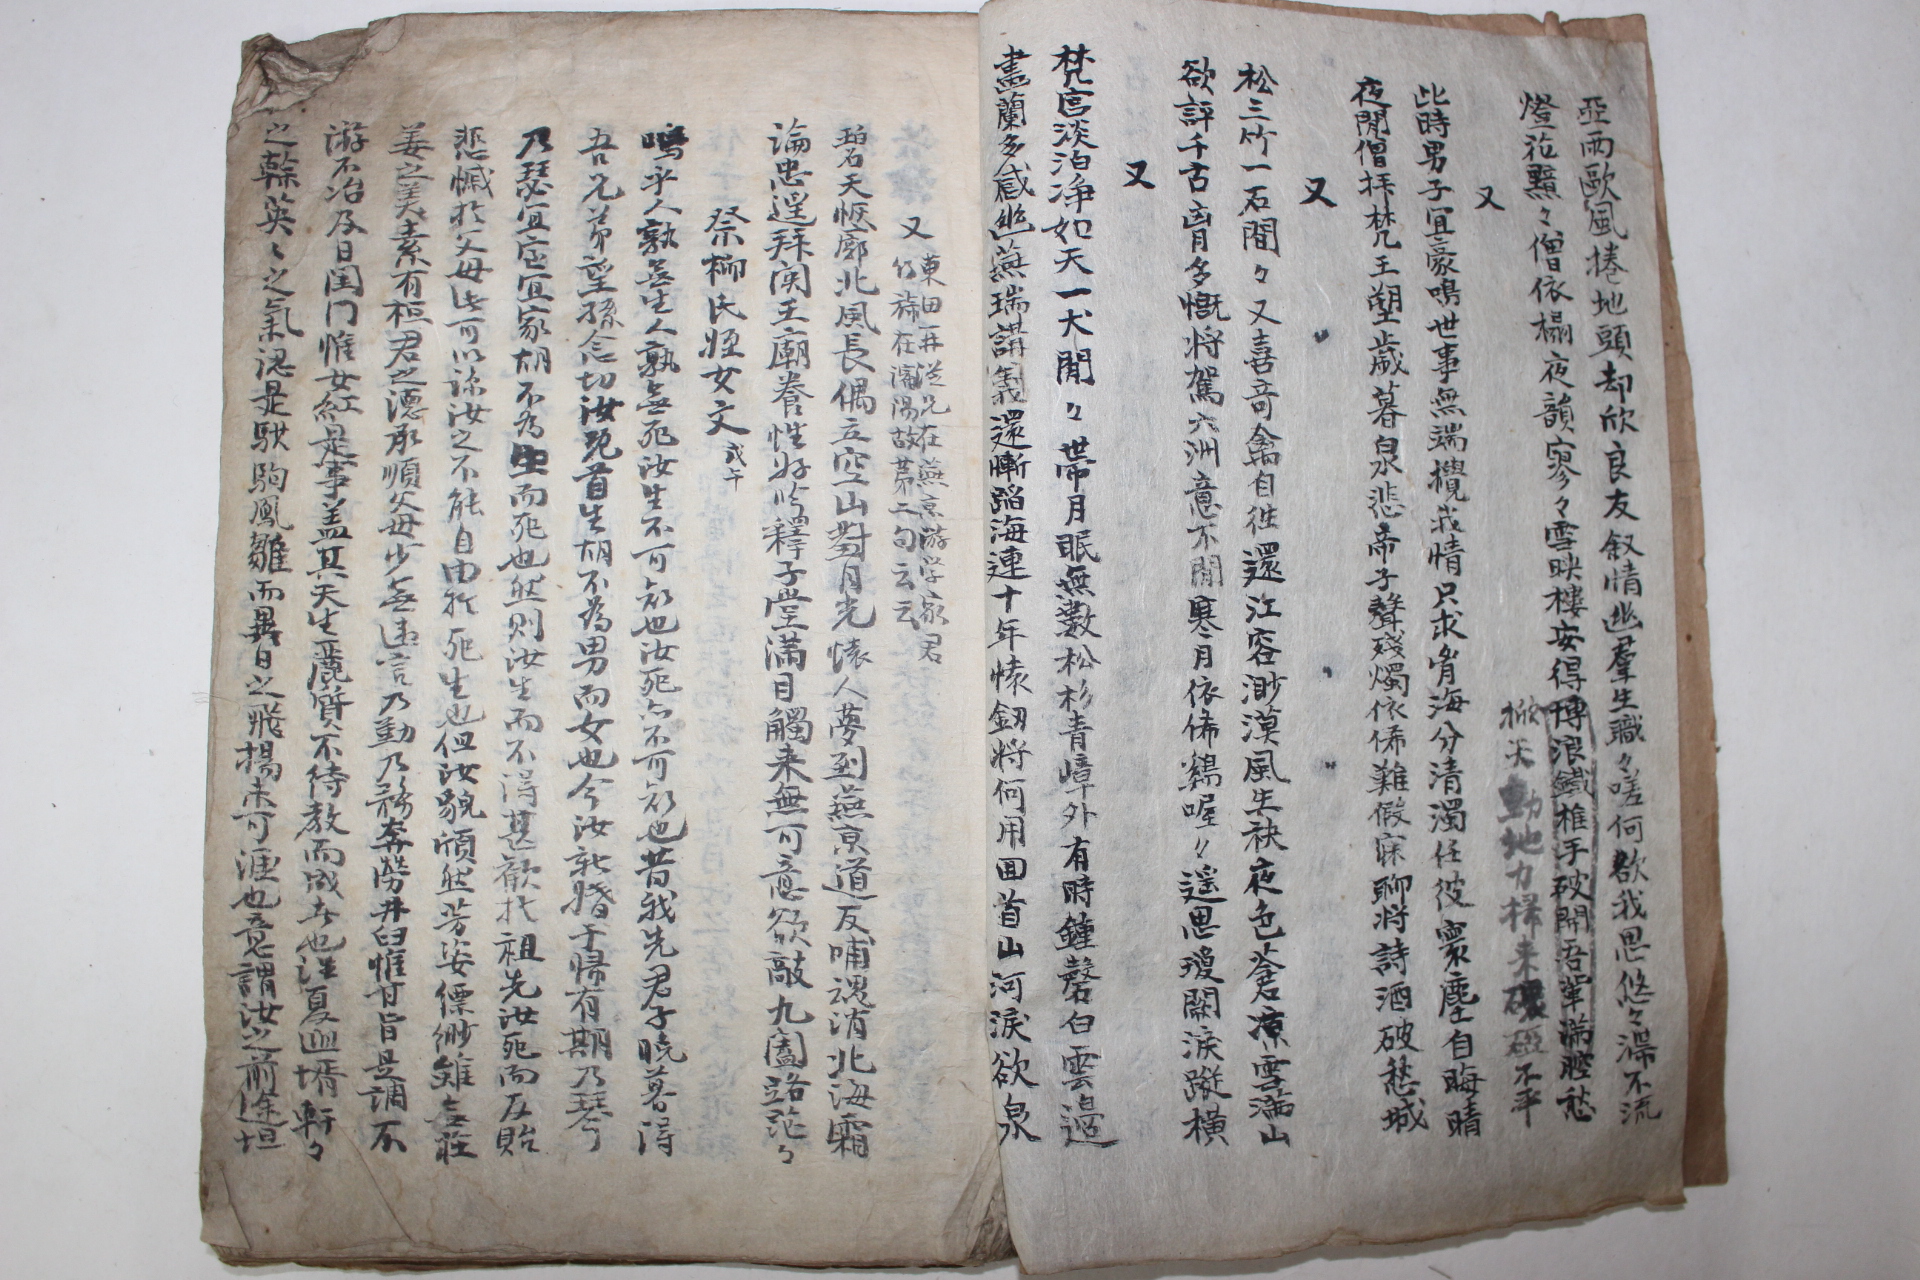 亞雨歐風捲地頭却欣良友叙情幽羣生職々嗟何欲我思悠々濁不流
燈花點々僧依榻夜韻寥々雪映樓安得博浪鐵椎手破開吾輩滿腔愁
掀天動地力擇来磯磁不平
又
此時男子宜豪鳴世事無端攪我情只求肯海分清濁任彼寰塵自晦晴
夜閒僧拝梵王塑歳暮泉悲帝子聲殘燭依俙難假寐聊將詩酒破愁城
又
松三竹一石間々又喜竒禽自徃還江容渺漠風生袂夜色蒼凉雪滿山
欲評千古胷多慨將駕六洲意不閒寒月依俙鷄喔々遥思瓊闕淚蹤横
又
梵宫淡泊净如天一犬閒々带月眠無數松杉青嶂外有時鍾磬白雲邉
盡蘭多感幽燕瑞講義還慚蹈海連十年懐釰將何用回首山河淚欲泉
又
東田再從兄在燕京游学家君
仍旅在瀋陽故第二句云云
碧天恢廓北風長偶立空山對月光懐人夢到燕京道反哺魂消北海霜
論忠遥拜関王廟養性好吟釋子堂滿目觸来無可意欲敲九閽路茫々
祭柳氏姪女文 戊午
嗚乎人孰無生人孰無死汝生不可知也汝死亦不可知也昔我先君子曉暮得
吾兄弟望孫念切汝旣首生胡不為男而女也今汝新婚于歸有期乃琴
乃瑟宜室宜家胡不為生而死也然則汝生而不得甚歡於祖先汝死而反貽
悲慽於父母此可以諒汝之不能自由於死生也但汝貌頎然芳姿縹緲雖無莊
姜之美素有桓君之德承順父母少無違言乃勤乃務奔勞井臼惟甘旨是調不
游不冶及日閨门惟女紅是事盖其天生麗質不待教而成者也往夏迎壻軒々
之幹英々之氣認是駃駒鳳雛而異日之飛揚未可涯也竟謂汝之前途坦